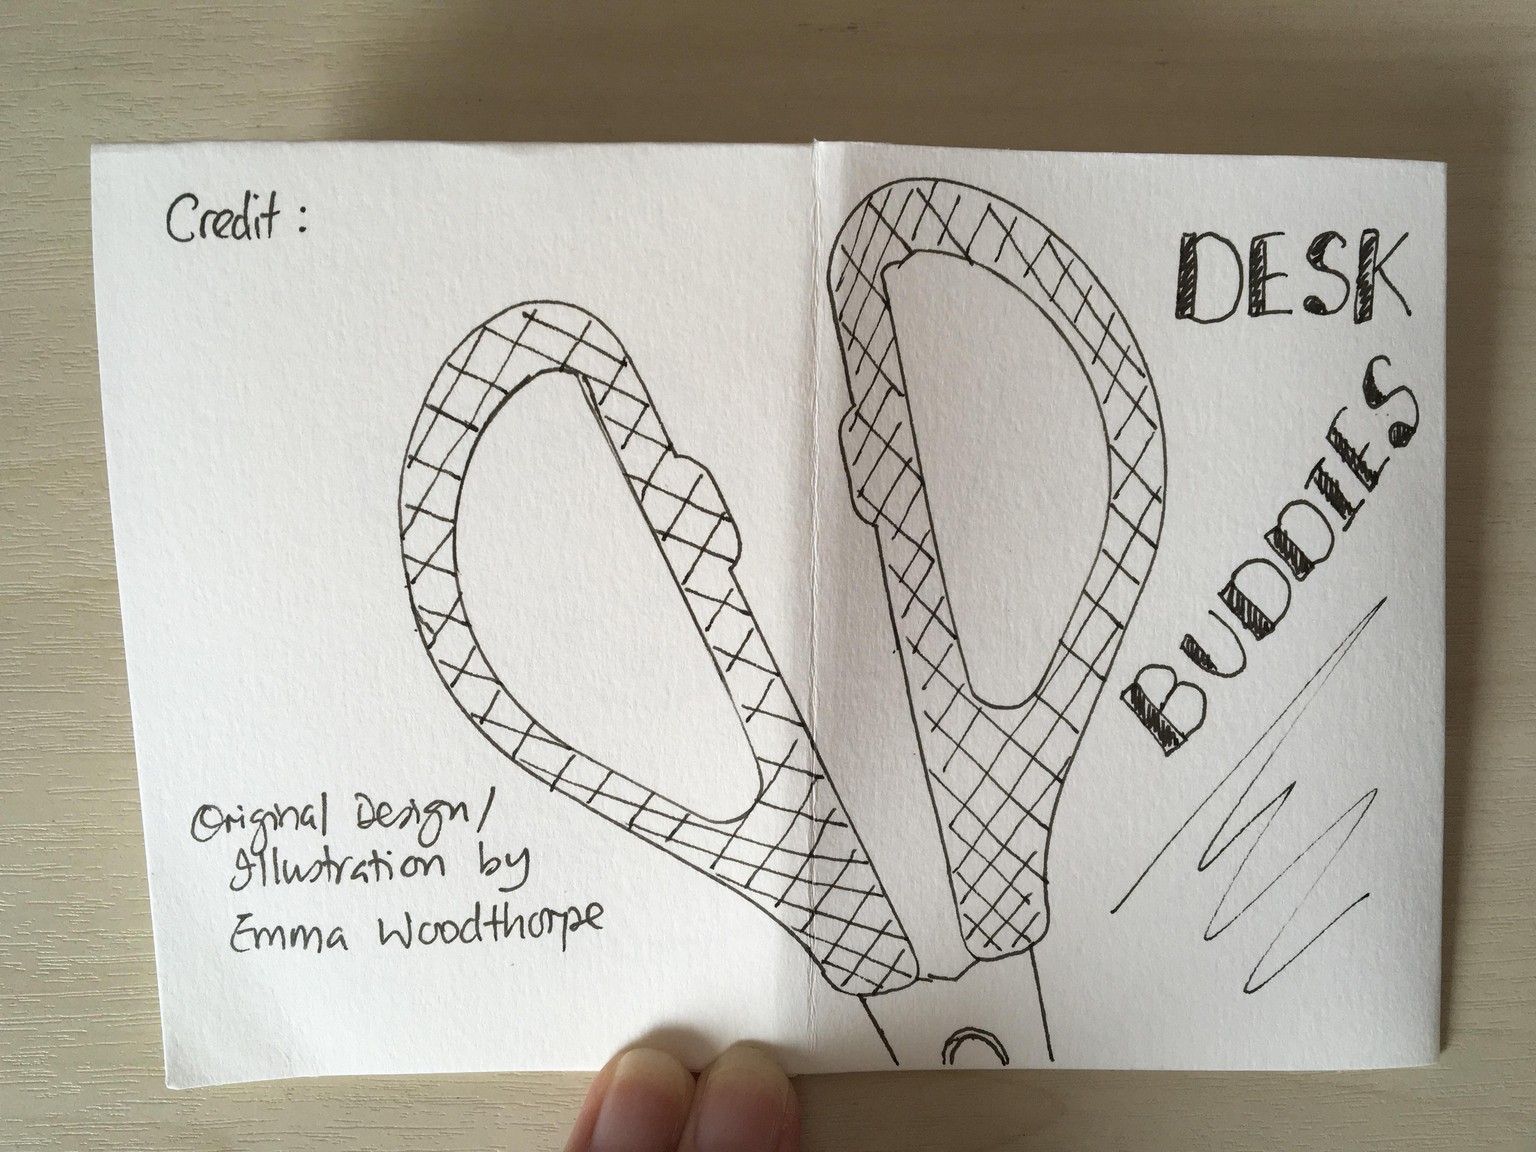 Credit :
Original Design/
Illustration by
Emma Woodthorpe
DESK
BUDDIES